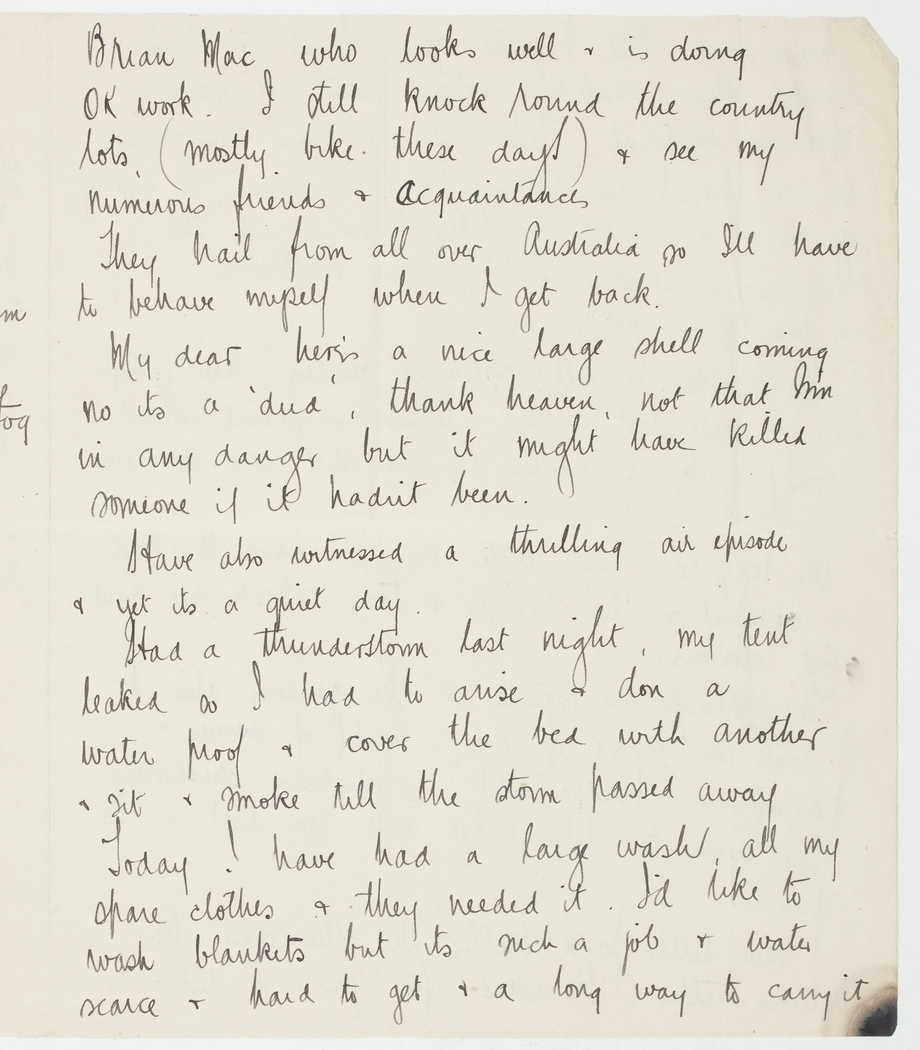 Brian Mac who looks well & is doing
OK work. I still knock round the country
lots, (mostly bike. these days) & see my
numerous friends & acquaintances
They hail from all over Australia so I'll have
to behave myself when I get back.
My dear her's a nice large shell coming
no its a 'dud', thank heaven, not that I'm
in any danger but it might have killed
someone if it hadn't been.
Have also witnessed a thrilling air episode
& yet its a quiet day.
Had a thunderstorm last night, my tent
leaked so I had to arise & don a
water proof & cover the bed with another
& sit & smoke till the storm passed away
Today I have had a large wash, all my
spare clothes & they needed it. I'd like to
wash blankets but its such a job & water
scarce & hard to get & a long way to carry it